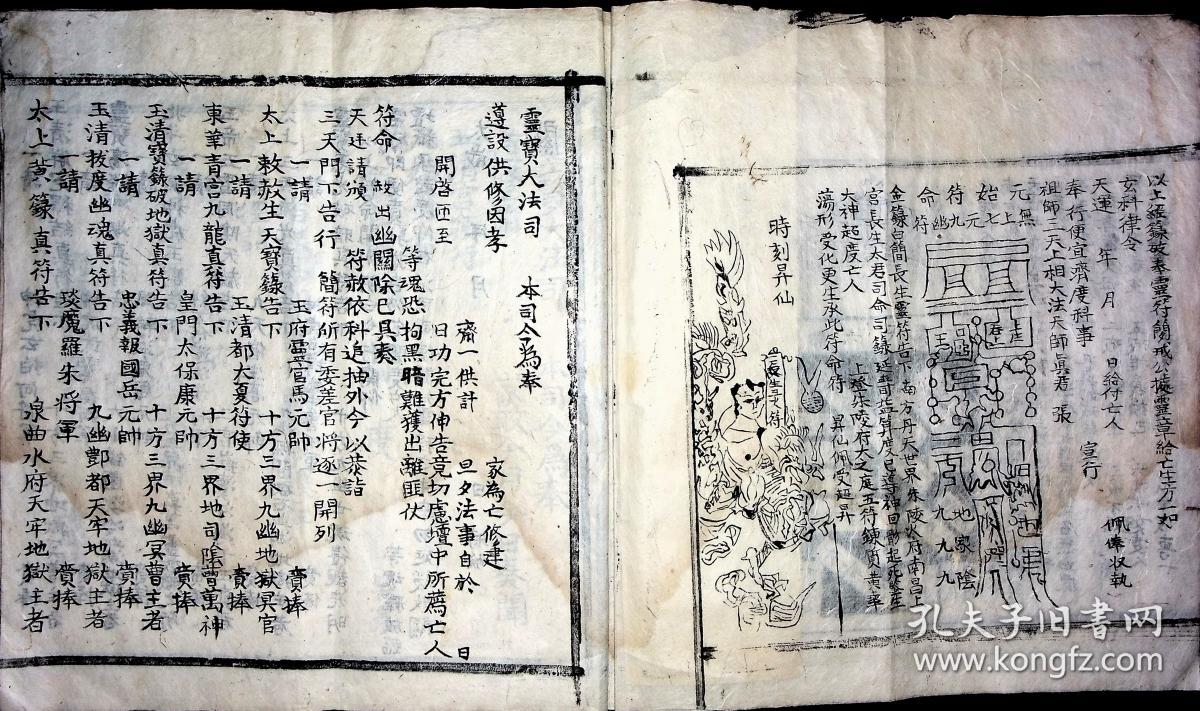 以上籙籙破奉靈符關戒公據靈章給亡生方一如
玄科律令
天運 年 月 日給付亡人 佩俸收執
奉行便宜齊度科事 宣行
祖師三天上相大法天師真君 張
元始符命
無上七九幽符
元 地 九
陰 家 九
金籙白簡長生靈符告下南方丹天世界朱陵火府南昌上
宮長生太君司命司錄延壽益算度厄尊神回骸起死受生
大神超度亡人 上登朱陵府大之庭五符鍊質黃華
蕩形受化更生承此符命待 昇仙佩受超昇
時刻昇仙
長生天符
靈寶大法司 本司今為奉
遵設供修因孝 家為亡修建
齋一供計 旦夕法事自於 日
開啓匝至 日功完方伸告竟切慮壇中所薦亡人
等魂恐拘黑暗難獲出離匪伏
符命 赦出幽關除已具奏
天廷請頒 符敕依科追抽外今以恭詣
三天門下告行 簡符所有委差官將逐一開列
一請 玉府靈官馬元帥 賫捧
太上敕赦生天寶籙告下 十方三界九幽地獄冥官
一請 玉清都大夏符使 賫捧
東華青宮九龍真符告下 十方三界地司陰曹萬神
一請 皇門太保康元帥 賫捧
玉清寶籙破地獄真符告下 十方三界九幽冥曹主者
一請 忠義報國岳元帥 賫捧
玉清拔度幽魂真符告下 九幽酆都天牢地獄主者
一請 琰魔羅朱將軍 賫捧
太上黃籙真符告下 泉曲水府天牢地獄主者
孔夫子旧书网
www.kongfz.com